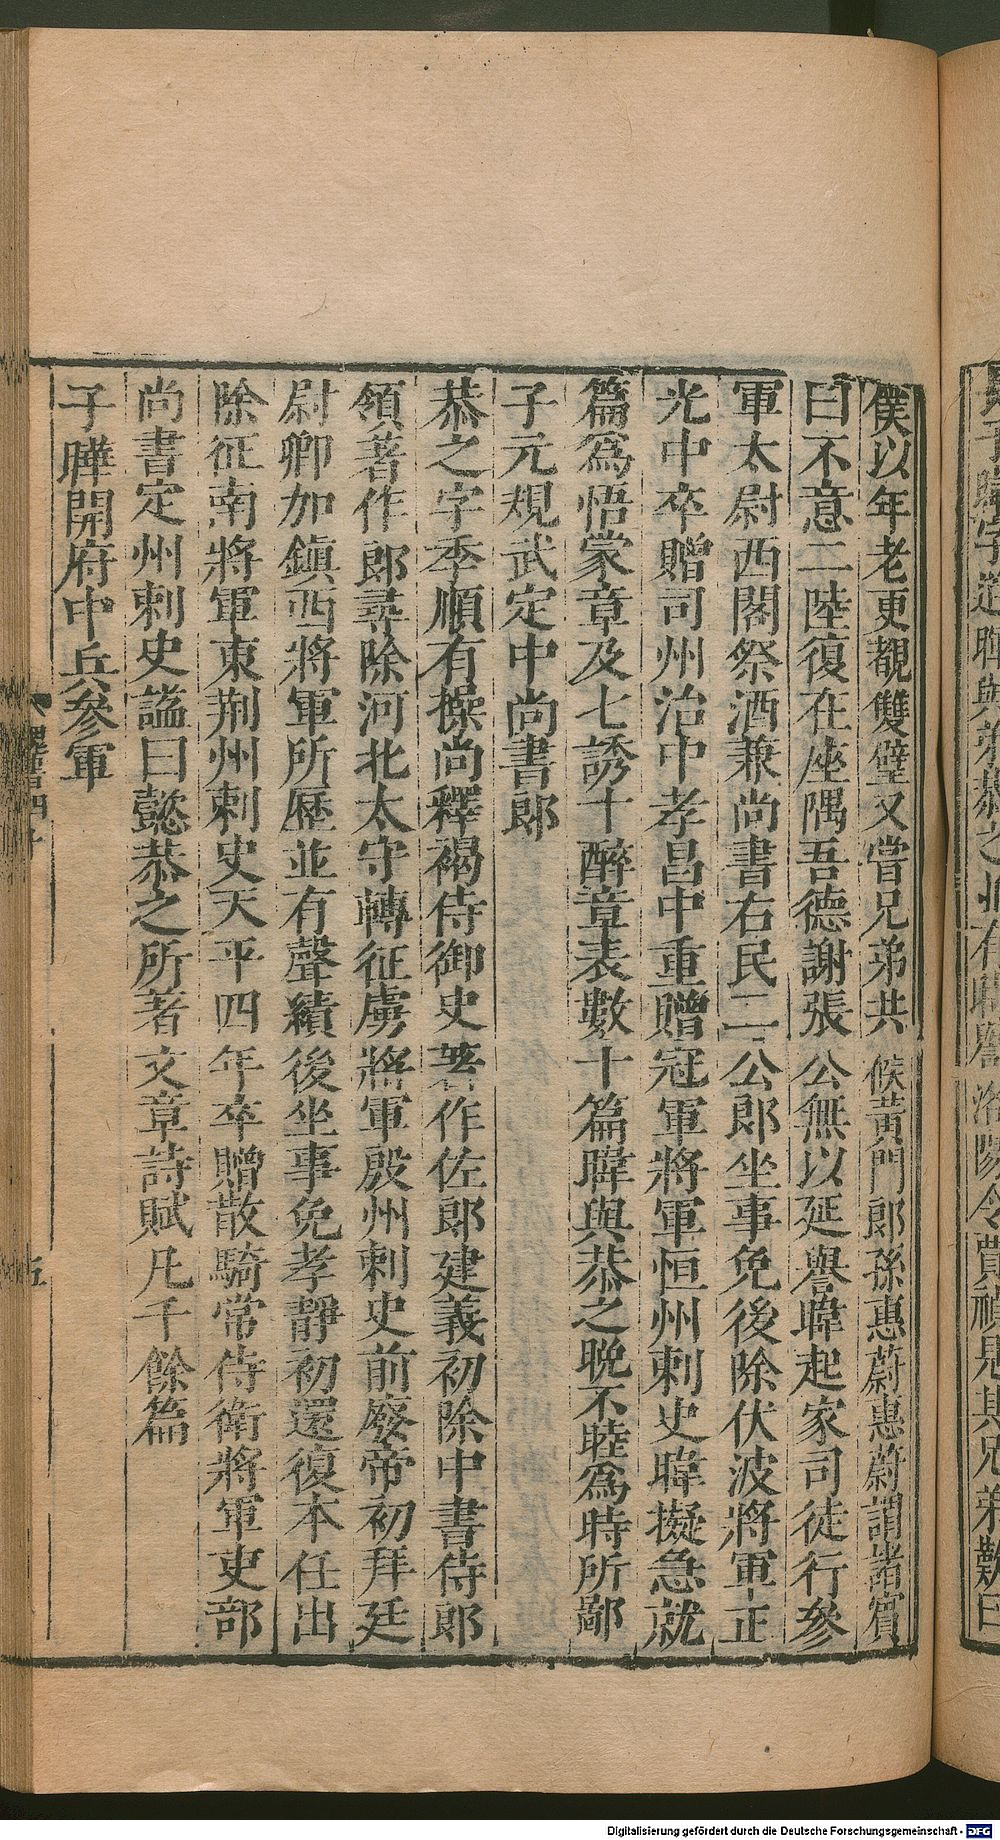 僕以年老更覩雙璧又嘗兄弟共候黃門郎孫惠蔚惠蔚謂諸賓
曰不意二陸復在座隅吾德謝張公無以延譽暐起家司徒行參
軍太尉西閣祭酒兼尚書右民二公郎坐事免後除伏波將軍正
光中卒贈司州治中孝昌中重贈冠軍將軍恒州刺史暐擬急就
篇爲悟蒙章及七誘十醉章表數十篇暐與恭之晚不睦爲時所鄙
子元規武定中尚書郎
恭之字季順有操尚釋褐侍御史著作佐郎建義初除中書侍郎
領著作郎尋除河北太守轉征虜將軍殷州刺史前廢帝初拜廷
尉卿加鎭西將軍所歷並有聲績後坐事免孝靜初還復本任出
除征南將軍東荊州刺史天平四年卒贈散騎常侍衛將軍吏部
尚書定州刺史謚曰懿恭之所著文章詩賦凡千餘篇
子曄開府中兵參軍
五
Digitalisierung gefördert durch die Deutsche Forschungsgemeinschaft - DFG